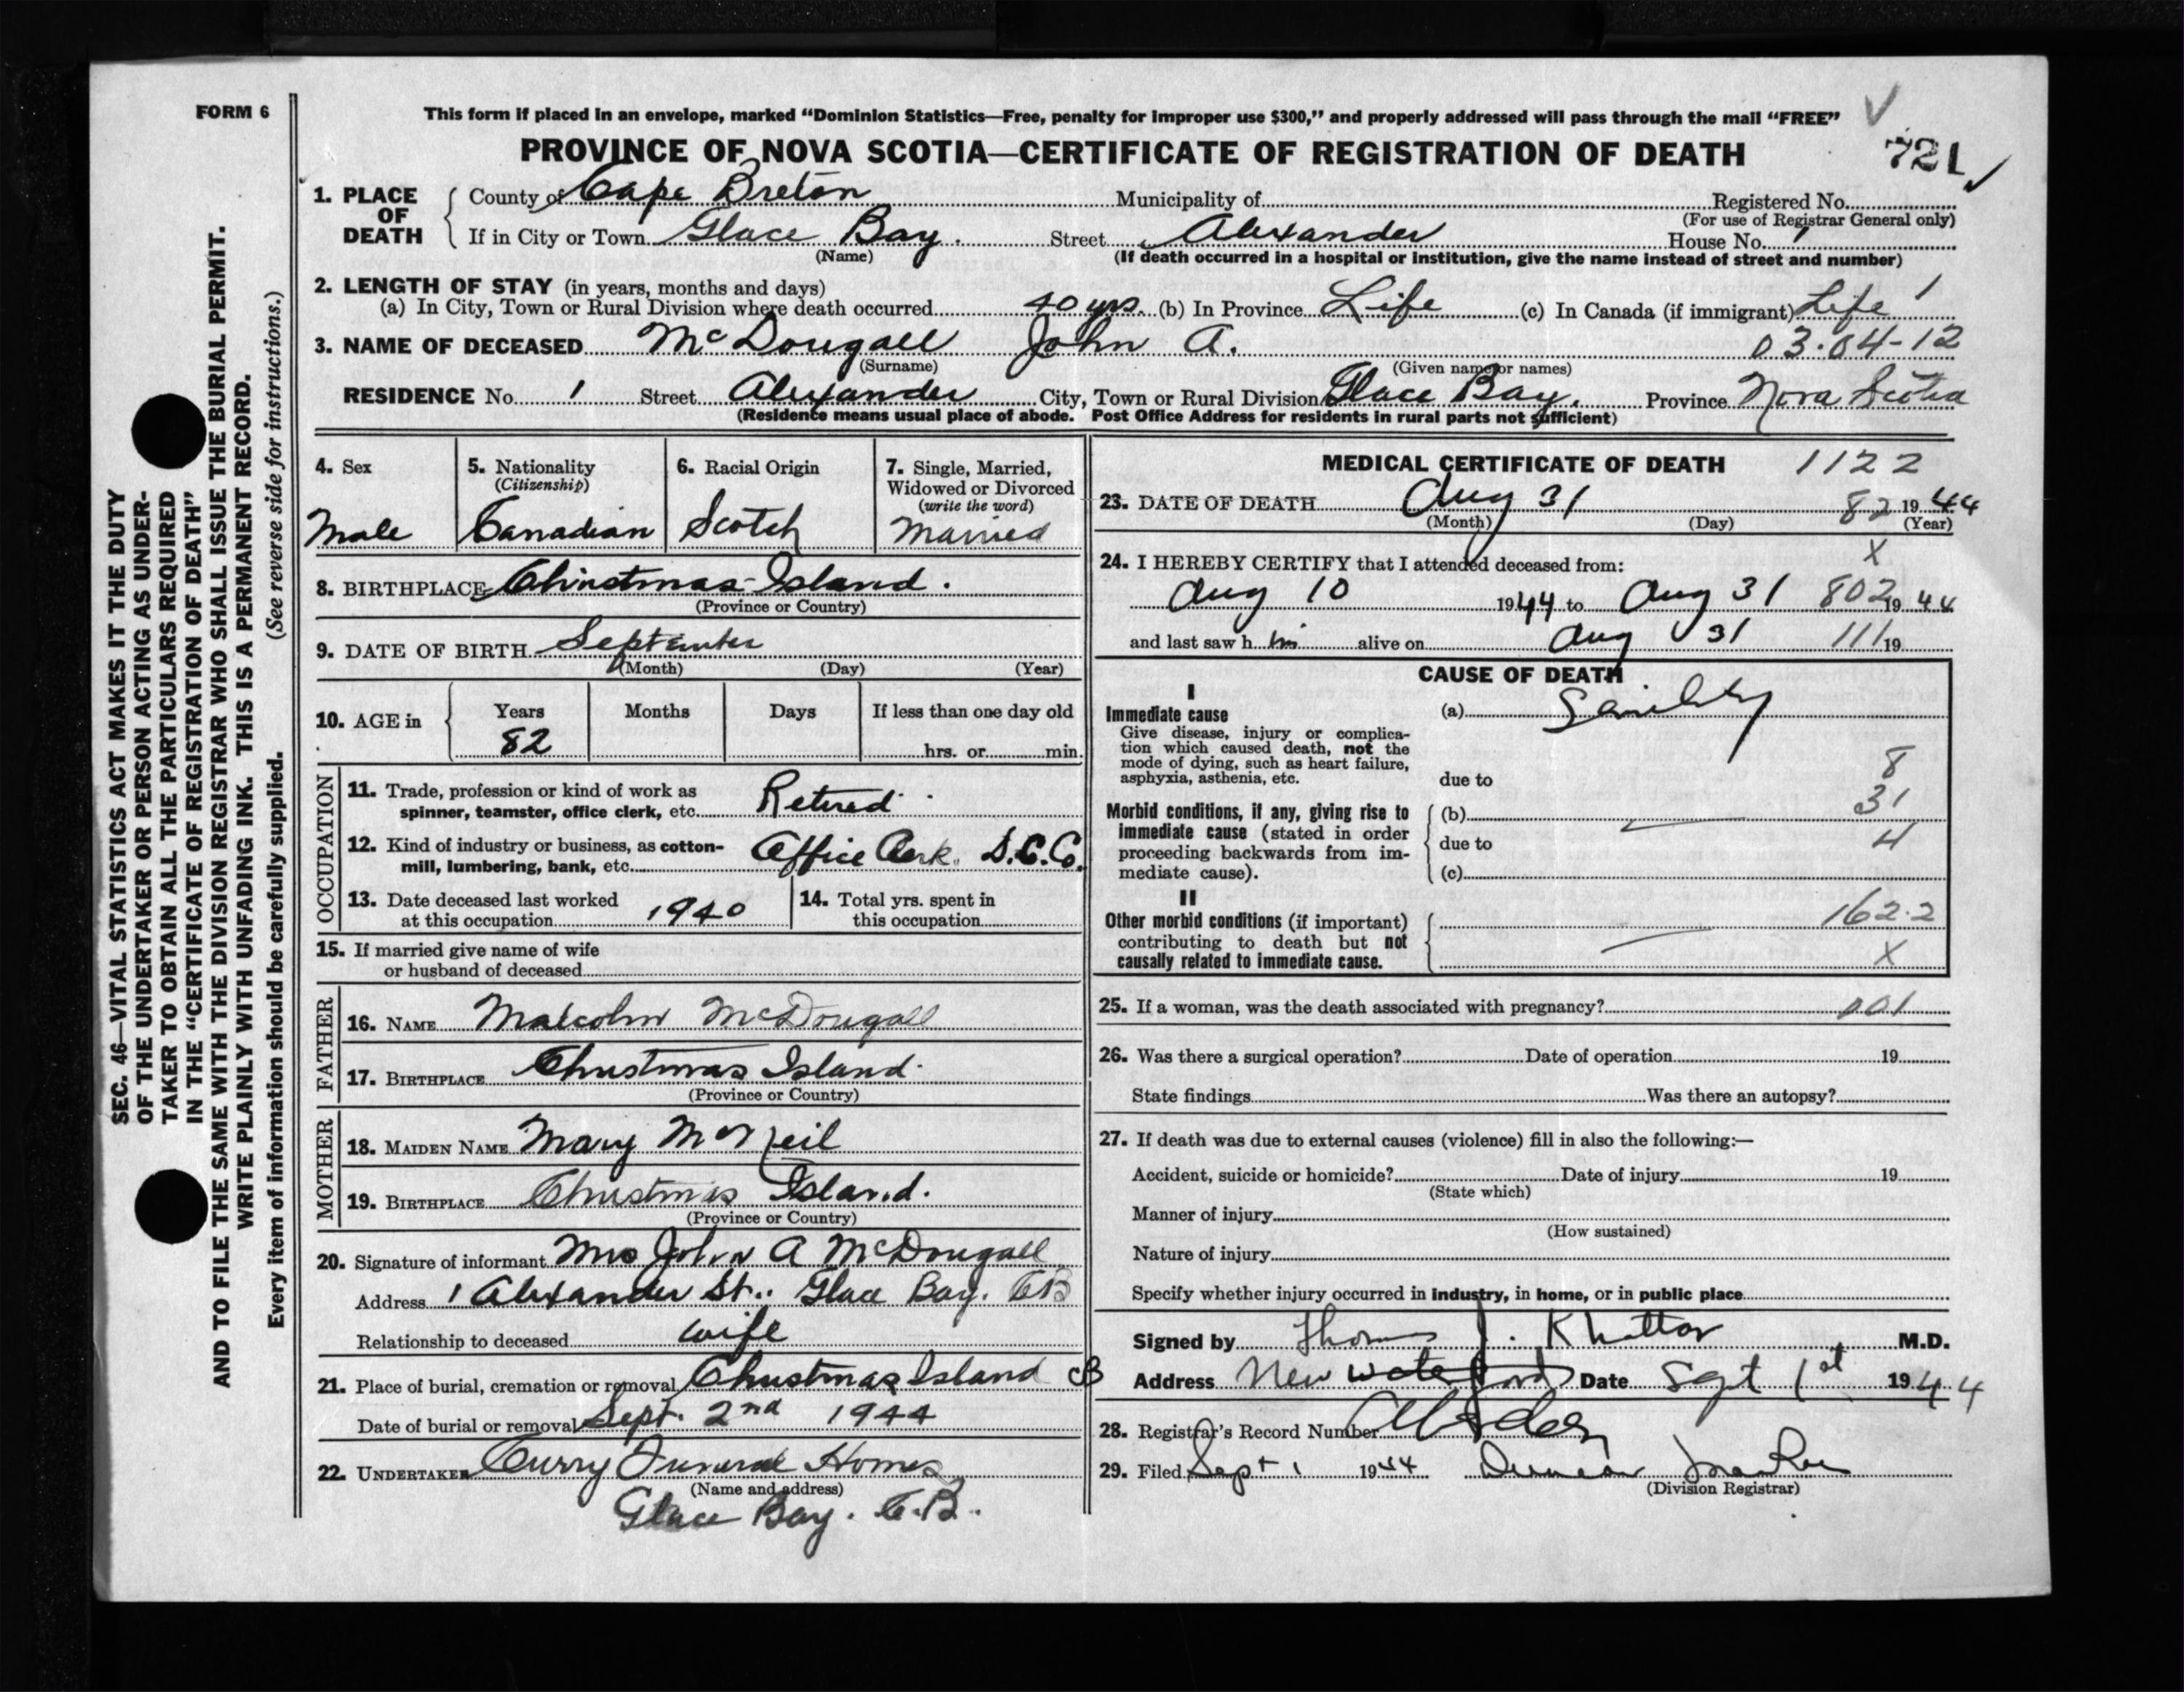 FORM 6
This form if placed in an envelope, marked "Dominion Statistics—Free, penalty for improper use $300," and properly addressed will pass through the mail "FREE"
PROVINCE OF NOVA SCOTIA—CERTIFICATE OF REGISTRATION OF DEATH
721
1. PLACE OF DEATH
County of Cape Breton Municipality of Registered No.
(For use of Registrar General only)
If in City or Town Glace Bay. Street Alexander House No. 1
(Name) (If death occurred in a hospital or institution, give the name instead of street and number)
2. LENGTH OF STAY (in years, months and days)
(a) In City, Town or Rural Division where death occurred 40 yrs. (b) In Province Life (c) In Canada (if immigrant) Life 1
3. NAME OF DECEASED McDougall John A. 03.04-12
(Surname) (Given name or names)
RESIDENCE No. 1 Street Alexander City, Town or Rural Division Glace Bay. Province Nova Scotia
(Residence means usual place of abode. Post Office Address for residents in rural parts not sufficient)
4. Sex
Male
5. Nationality
(Citizenship)
Canadian
6. Racial Origin
Scotch
7. Single, Married,
Widowed or Divorced
(write the word)
Married
8. BIRTHPLACE Christmas Island.
(Province or Country)
9. DATE OF BIRTH September
(Month) (Day) (Year)
10. AGE in Years Months Days If less than one day old
82 hrs. or min.
OCCUPATION
11. Trade, profession or kind of work as
spinner, teamster, office clerk, etc. Retired
12. Kind of industry or business, as cotton-
mill, lumbering, bank, etc. Office Clerk. D.C.Co.
13. Date deceased last worked
at this occupation 1940
14. Total yrs. spent in
this occupation
15. If married give name of wife
or husband of deceased
FATHER
16. NAME Malcolm McDougall
17. BIRTHPLACE Christmas Island.
(Province or Country)
MOTHER
18. MAIDEN NAME Mary McNeil
19. BIRTHPLACE Christmas Island.
(Province or Country)
20. Signature of informant Mrs John A McDougall
Address 1 Alexander St.. Glace Bay. CB
Relationship to deceased wife
21. Place of burial, cremation or removal Christmas Island CB
Date of burial or removal Sept. 2nd 1944
22. UNDERTAKER Curry Funeral Homes
(Name and address)
Glace Bay. C.B.
MEDICAL CERTIFICATE OF DEATH 1122
23. DATE OF DEATH Aug 31 82 1944
(Month) (Day) (Year)
X
24. I HEREBY CERTIFY that I attended deceased from:
Aug 10 1944 to Aug 31 802 1944
and last saw h im alive on Aug 31 111 19
CAUSE OF DEATH
I
Immediate cause
Give disease, injury or complica-
tion which caused death, not the
mode of dying, such as heart failure,
asphyxia, asthenia, etc.
(a) Senility
due to
8
31
4
Morbid conditions, if any, giving rise to
immediate cause (stated in order
proceeding backwards from im-
mediate cause).
(b)
due to
(c)
II
Other morbid conditions (if important)
contributing to death but not
causally related to immediate cause.
162.2
X
25. If a woman, was the death associated with pregnancy? 001
26. Was there a surgical operation? Date of operation 19
State findings Was there an autopsy?
27. If death was due to external causes (violence) fill in also the following:—
Accident, suicide or homicide? Date of injury 19
(State which)
Manner of injury
(How sustained)
Nature of injury
Specify whether injury occurred in industry, in home, or in public place
Signed by Thomas J. Khattar M.D.
Address New Waterford Date Sept 1st 1944
28. Registrar's Record Number
29. Filed Sept 1 1944 Duncan MacRae
(Division Registrar)
SEC. 46—VITAL STATISTICS ACT MAKES IT THE DUTY
OF THE UNDERTAKER OR PERSON ACTING AS UNDER-
TAKER TO OBTAIN ALL THE PARTICULARS REQUIRED
IN THE "CERTIFICATE OF REGISTRATION OF DEATH"
AND TO FILE THE SAME WITH THE DIVISION REGISTRAR WHO SHALL ISSUE THE BURIAL PERMIT.
WRITE PLAINLY WITH UNFADING INK. THIS IS A PERMANENT RECORD.
Every item of information should be carefully supplied. (See reverse side for instructions.)